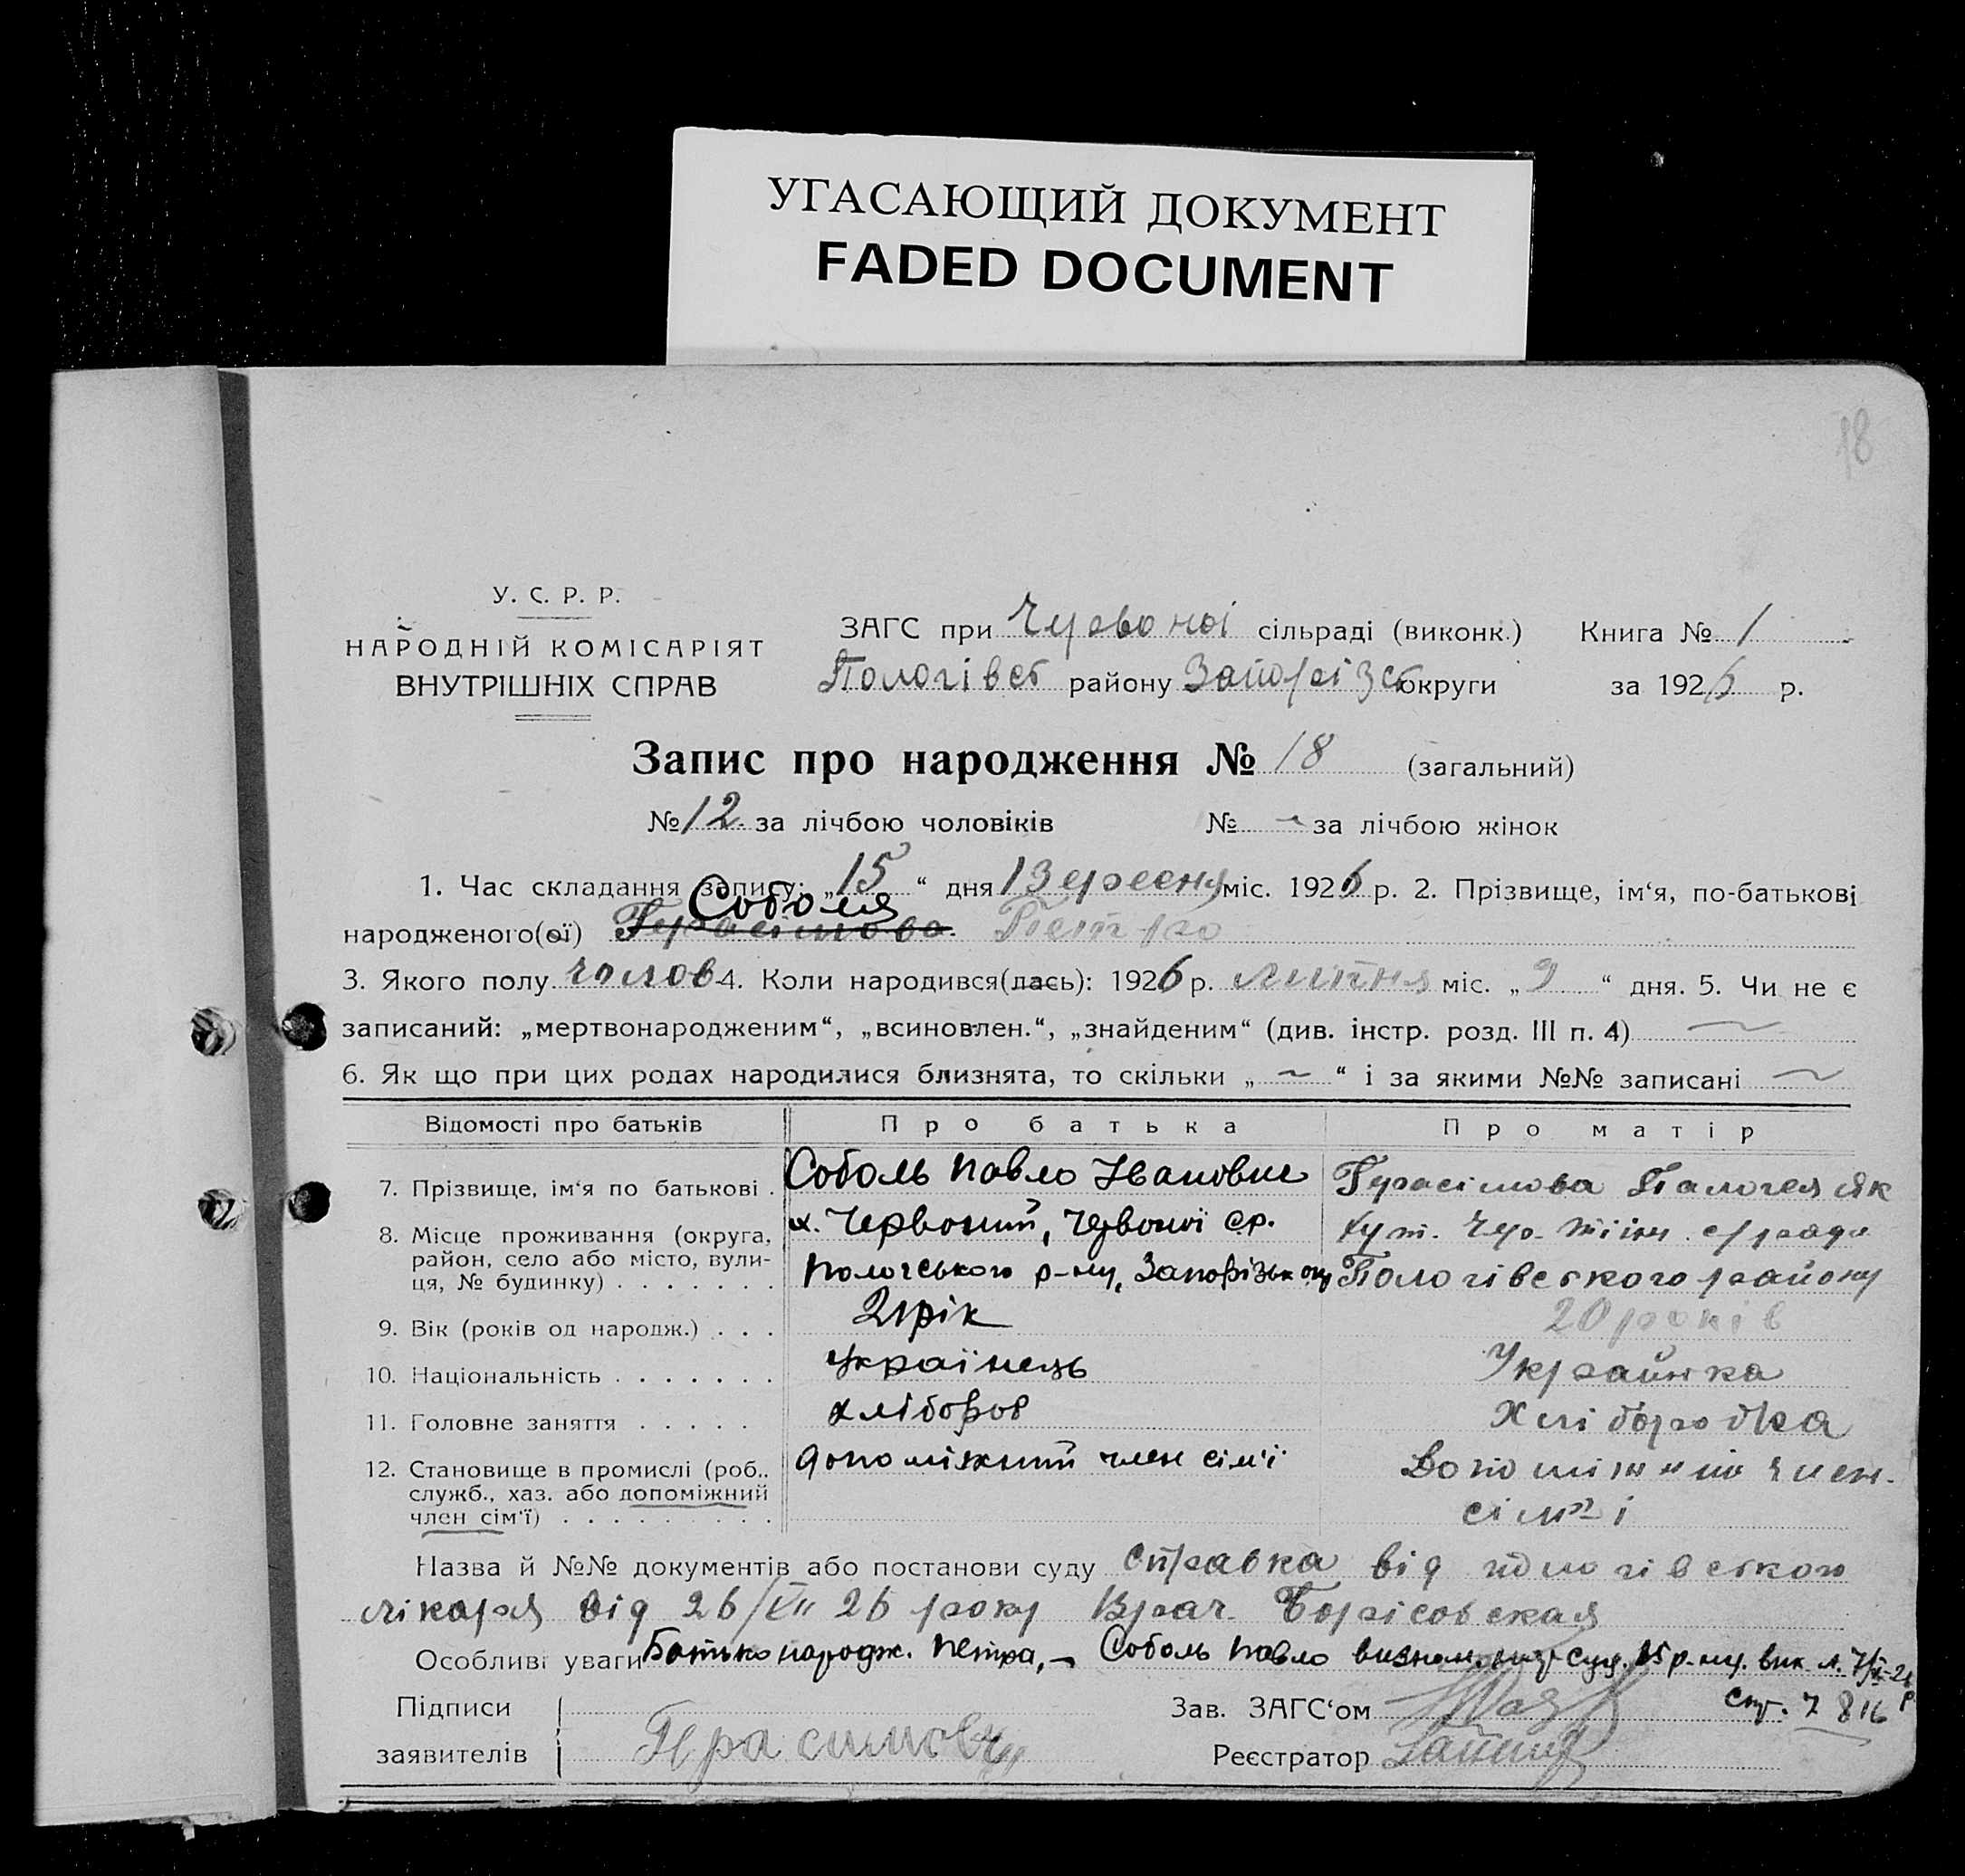 УГАСАЮЩИЙ ДОКУМЕНТ
FADED DOCUMENT
18
У. С. Р. Р.
НАРОДНІЙ КОМІСАРІЯТ
ВНУТРІШНІХ СПРАВ
ЗАГС при Червоної сільраді (виконк.) Книга № 1
Пологівсь району Запорізь округи за 1926 р.
Запис про народження № 18 (загальний)
№ 12 за лічбою чоловіків № - за лічбою жінок
1. Час складання запису: „15“ дня Вересня міс. 1926 р. 2. Прізвище, ім‘я, по-батькові
Соболя
народженого(ої) Герасімова Петро
3. Якого полу чолов 4. Коли народився(лась): 1926 р. липня міс. „9“ дня. 5. Чи не є
записаний: „мертвонародженим“, „всиновлен.“, „знайденим“ (див. інстр. розд. III п. 4) ~
6. Як що при цих родах народилися близнята, то скільки „ ~ “ і за якими №№ записані ~
Відомості про батьків Про батька Про матір
7. Прізвище, ім‘я по батькові . Соболь Павло Іванович Герасімова Палогея Як
8. Місце проживання (округа, район, село або місто, вулиця, № будинку) . . . . . . . х. Червоний, Червоної с.р. хут. Чер.
Пологського р-ну, Запорізьк окр Пологівського району
9. Вік (років од народж.) . . . 21 рік 20 років
10. Національність . . . . . . . Українець Українка
11. Головне заняття . . . . . хлібороб Хліборобка
12. Становище в промислі (роб., служб., хаз. або допоміжний член сім‘ї) . . . . . . . . . допоміжний член сім'ї Допоміжний член.
сімʼі
Назва й №№ документів або постанови суду Справка від пологівского
лікаря від 26/VII 26 року Врач. Борісовская
Особливі уваги Батько народж. Петра, - Соболь Павло
Підписи
заявителів Герасимову
Зав. ЗАГС‘ом
Стр. 7 816
Реєстратор